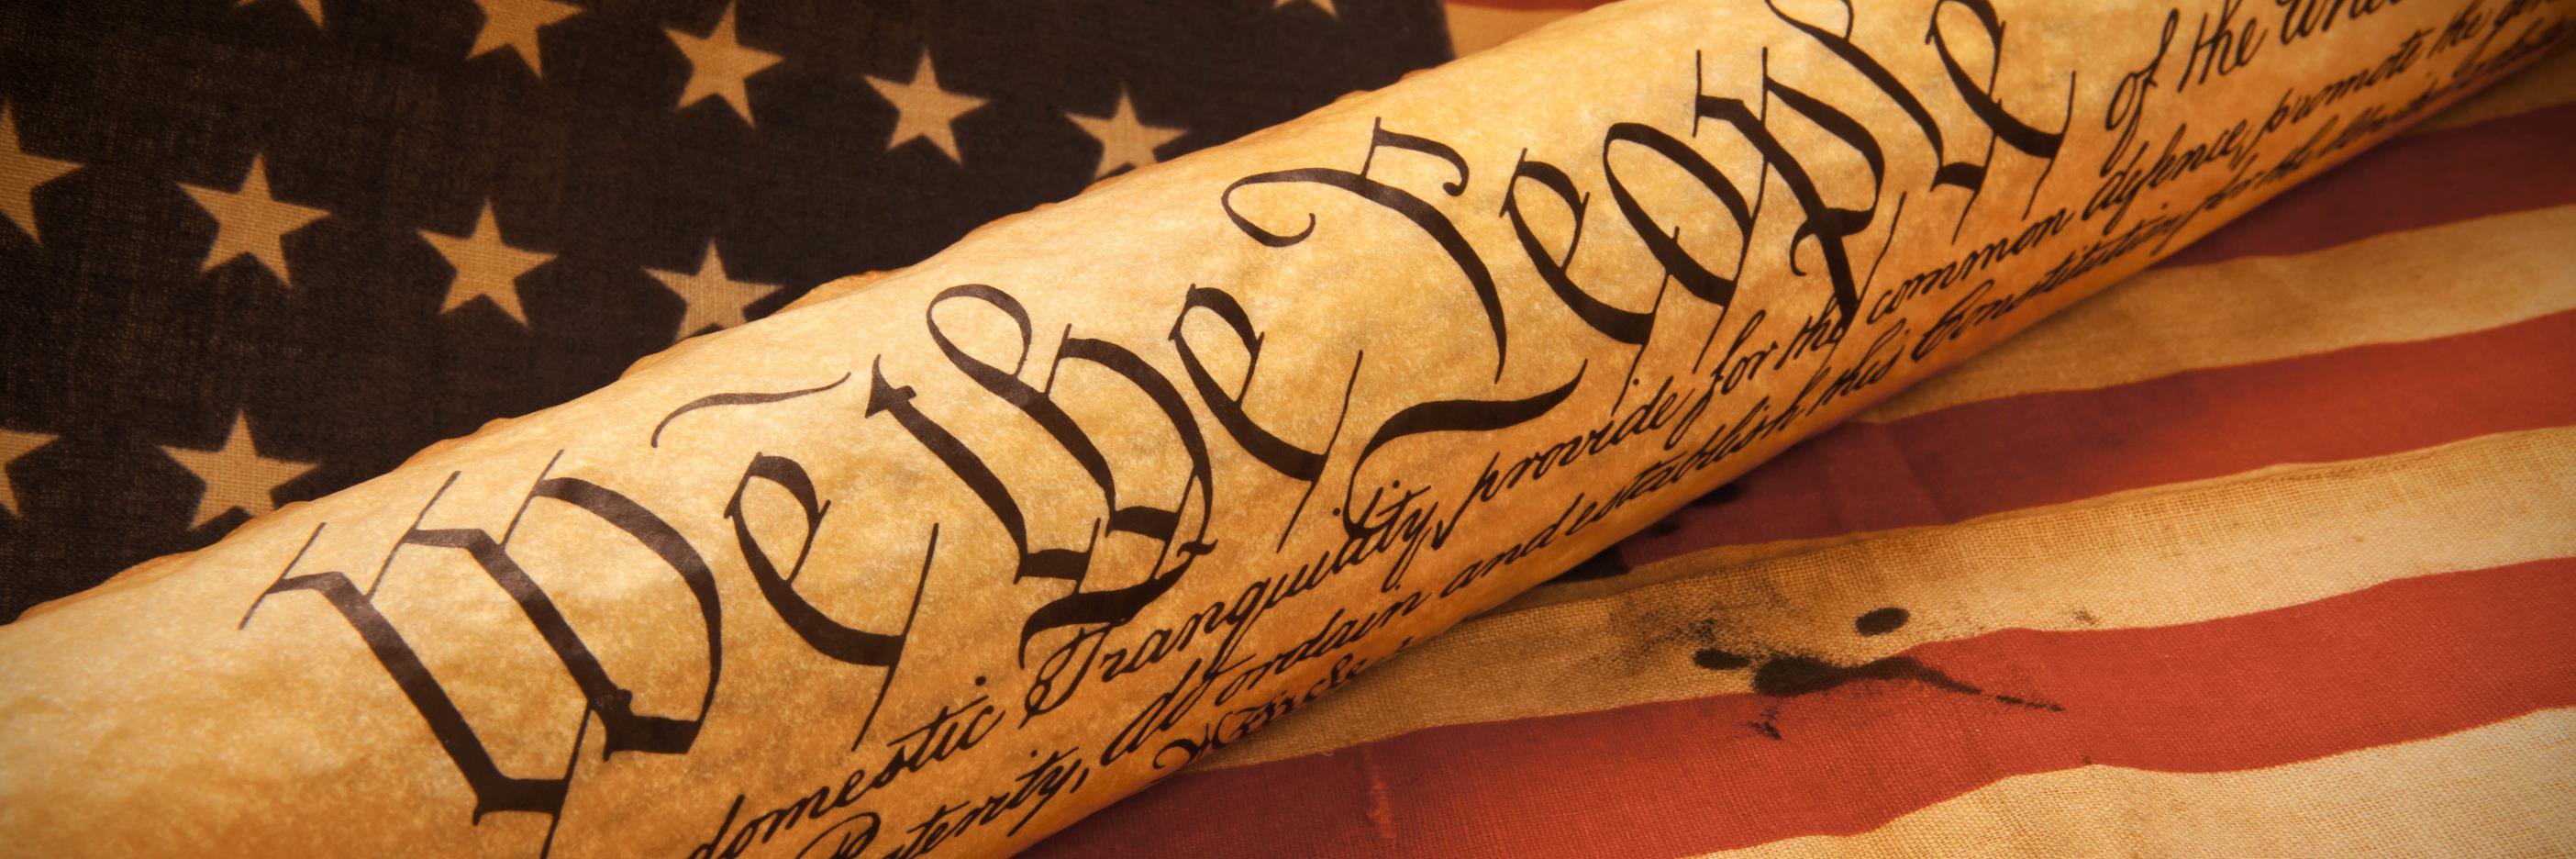 We the People of the United
domestic Tranquility, provide for the common defence, promote the
Posterity, do ordain and establish this Constitution for the